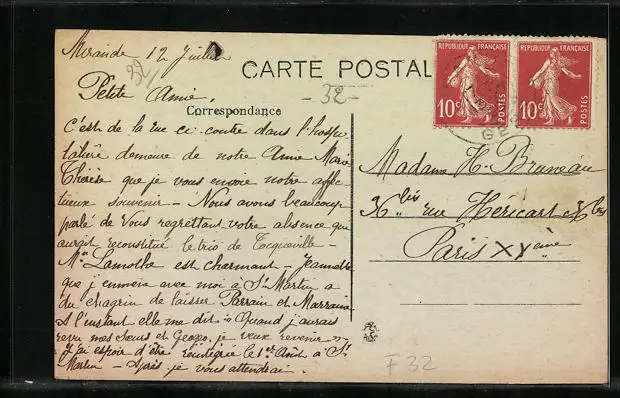 Mirande 12 Juillet
32
Petite Amie,
CARTE POSTALE
- 32 -
Correspondance
C'est de la rue ci contre dans l'hospi
talière demeure de notre Amie Marie
Thérèse que je vous envoie notre affec
tueux souvenir - Nous avons beaucoup
parlé de Vous regrettant votre absence qui
aurait reconstitué le trio de Tocqueville -
Me Lamothe est charmant - Jeannette
que j'emmène avec moi à St Martin a
du chagrin de laisser Parrain et Marraine
A l'instant elle me dit "Quand j'aurais
revu mes Sœurs et je veux revenir"
J'ai espoir d'être le 1er Août à St
Martin - Après je vous attendrai.
REPUBLIQUE FRANÇAISE
10c
POSTES
REPUBLIQUE FRANÇAISE
10c
POSTES
GERS
Madame H. Bruneau
rue Héricart
Paris XVème
F 32